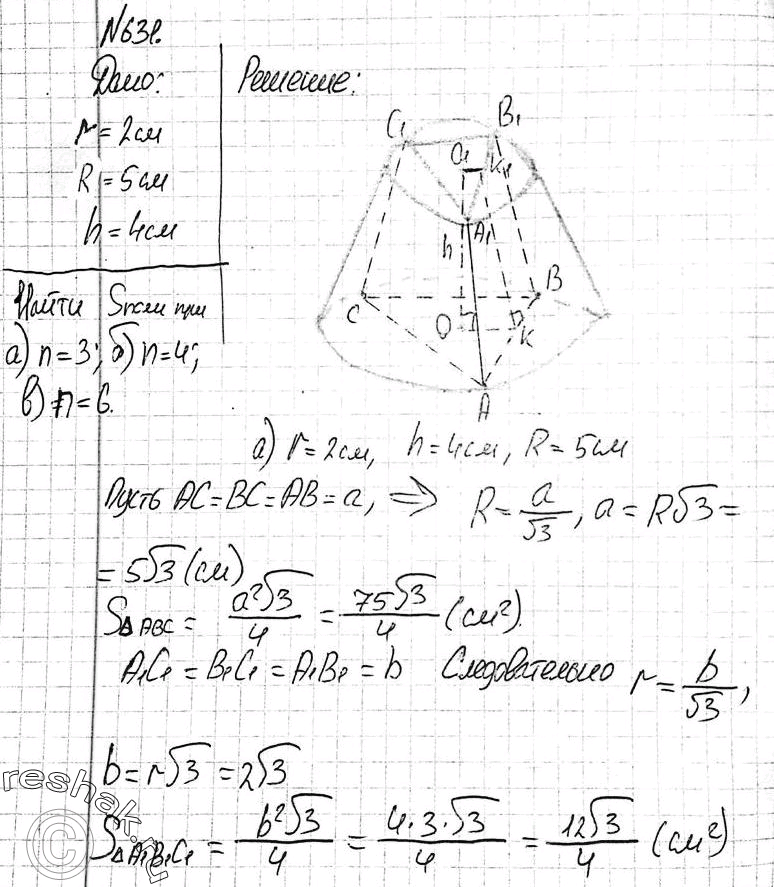 N631.
Дано:
r = 2см
R = 5см
h = 4см
Найти Sполн при
а) n = 3; б) n = 4;
в) n = 6.
Решение:
C₁ B₁
O₁ K₁
A₁
h
C B
O K
A
а) r = 2см, h = 4см, R = 5см
Пусть AC = BC = AB = a, ⇒ R = a/√3, a = R√3 =
= 5√3 (см)
S△ABC = a²√3/4 = 75√3/4 (см²).
A₁C₁ = B₁C₁ = A₁B₁ = b Следовательно r = b/√3,
b = r√3 = 2√3
S△A₁B₁C₁ = b²√3/4 = 4·3·√3/4 = 12√3/4 (см²)
reshak.ru
©